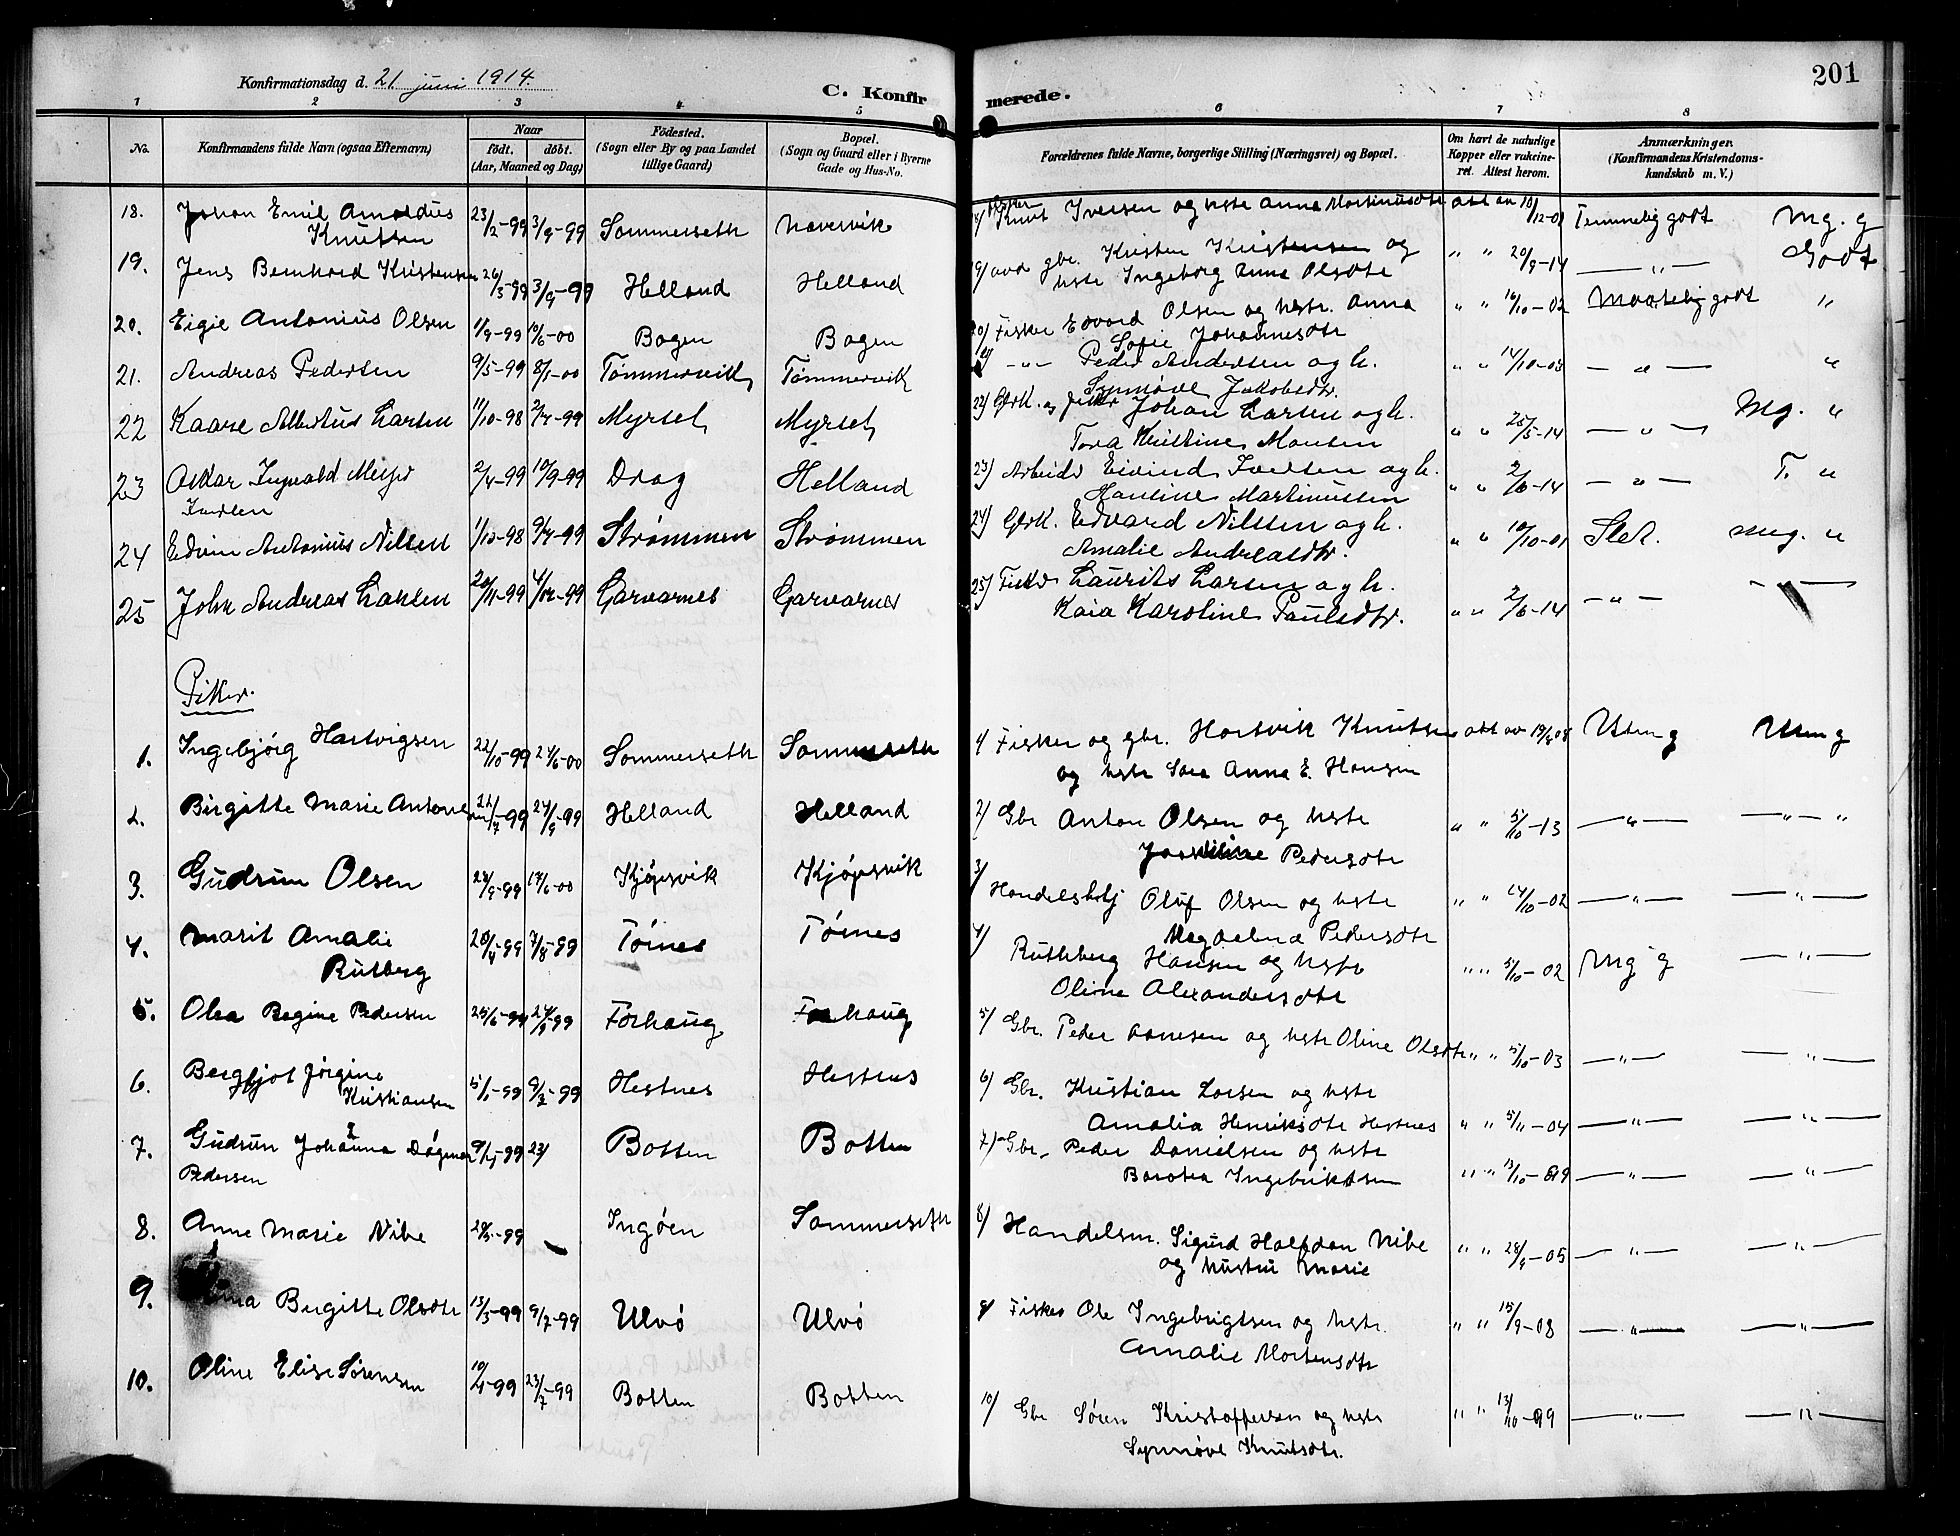 Konfirmationsdag d. 21 juni 1914.
C. Konfirmerede.
201
1 2 3 4 5 6 7 8
No. Konfirmandens fulde Navn (ogsaa Efternavn)
Naar
födt. döbt.
(Aar, Maaned og Dag)
Födested.
(Sogn eller By og paa Landet
tillige Gaard)
Bopæl.
(Sogn og Gaard eller i Byerne
Gade og Hus-No.
Forældrenes fulde Navne, borgerlige Stilling (Næringsvei) og Bopæl.
Om havt de naturlige
Kopper eller vakcine-
ret. Attest herom.
Anmærkninger.
(Konfirmandens Kristendoms-
kundskab m. V.)
18. Johan Emil Arnoldus
Knutsen 23/2-99 3/9-99 Sommerseth Naversvik
Fisker Knut Iversen og hstr Anna Martinusdtr att av 10/12-01 Temmelig godt Mg. g
19. Jens Bernhard Kristensen 26/3-99 3/9-99 Helland Helland
19/ gbr. Kristen Kristensen og
hstr Ingeborg Anna Olsdtr " " 20/9-14 — " — Godt
20. Eigil Antonius Olsen 1/9-99 10/6-00 Bogen Bogen
20/ Fisker Edvard Olsen og hstr. Anna
Sofie Johannesdtr " " 16/10-02 Maatelig godt "
21. Andreas Pedersen 9/5-99 8/1-00 Tømmervik Tømmervik
21/ -"- Peder Andersen og h.
Synnøve Jakobsdtr. " " 14/10-03 — " — "
22 Kaare Albertus Larsen 11/10-98 2/4-99 Myrset Myrset
22/ Grk. og Fisker Johan Larsen og h.
Tora Kristine Monsen " " 25/5-14 — " — Mg. "
23 Oskar Ingvald Meyer
Iversen 2/4-99 10/9-99 Drag Helland
23/ Arbeider Eivind Iversen og h.
Hansine Martinussen " " 2/6-14 — " — T. "
24 Edvin Antonius Nilsen 1/10-98 9/4-99 Strømmen Strømmen
24/ Grk. Edvard Nilssen og h.
Amalie Andreasdtr. " " 10/10-01 Slet. mg. "
25 John Andreas Larsen 20/11-99 4/12-99 Garvarnes Garvarnes
25/ Fisker Laurits Larsen og h.
Kaia Karoline Paulsdtr. " " 2/6-14 — " — — " —
Piker.
1. Ingebjørg Hartvigsen 22/10-99 24/6-00 Sommerseth Sommerseth
1/ Fisker og gbr. Hartvik Knutsen att av 19/8 08 Uteng Uteng
og hstr Sara Anna E. Hansen
2. Birgitte Marie Antons 22/7-99 24/9-99 Helland Helland
2/ Gbr Anton Olsen og hstr
Pedersdtr " " 5/10-13 — " — — " — "
3. Gudrun Olsen 24/9-99 17/6-00 Kjøpsvik Kjøpsvik
3/ Handelsbtj Oluf Olsen og hstr
Magdalena Pedersdtr " " 14/10-02 — " — — " —
4. Marit Amalie
Rutberg 20/4-99 7/8-99 Tørnes Tørnes
4/ Ruthberg Hansen og hstr
Oline Alexandersdtr " " 5/10-02 Mg g — " —
5. Olea Regine Pedersen 25/6-99 24/9-99 Forhaug Forhaug
5/ Gbr. Peder Arnesen og hstr Oline Olsdtr " " 5/10-03 — " — "
6. Bergljot Jørgine
Kristiansen 5/1-99 9/3-99 Hestnes Hestnes
6/ Gbr. Kristian Larsen og hstr
Amalia Henriksdtr Hestnes " " 5/11-04 — " — — " —
7. Gudrun Johanna Dagmar
Pedersen 9/4-99 23/ Botten Botten
7/ Gbr. Peder Danielsen og hstr
Barotea Ingebriktsen " " 13/10-09 — " — "
8. Anne Marie Nibe 28/5-99 — Ingøen Sommerseth
8/ Handelsm. Sigurd Halfdan Nibe
og hustru Marie " " 28/9-05 — " — — " —
9. Birgitte Olsdtr 13/3-99 9/7-99 Ulvø Ulvø
9/ Fisker Ole Ingebrigtsen og hstr.
Amalie Mortensdtr " " 15/9-08 — " — — " —
10. Oline Elise Sørensen 10/4-99 23/7-99 Botten Botten
10/ Gbr Søren Kristoffersen og hstr
Synnøve Knutsdtr. " " 13/10-09 — " — — " —